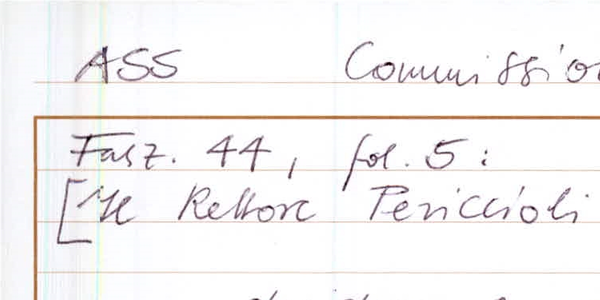 ASS Commissio
Fasz. 44, fol. 5:
[Il Rettore Periccioli